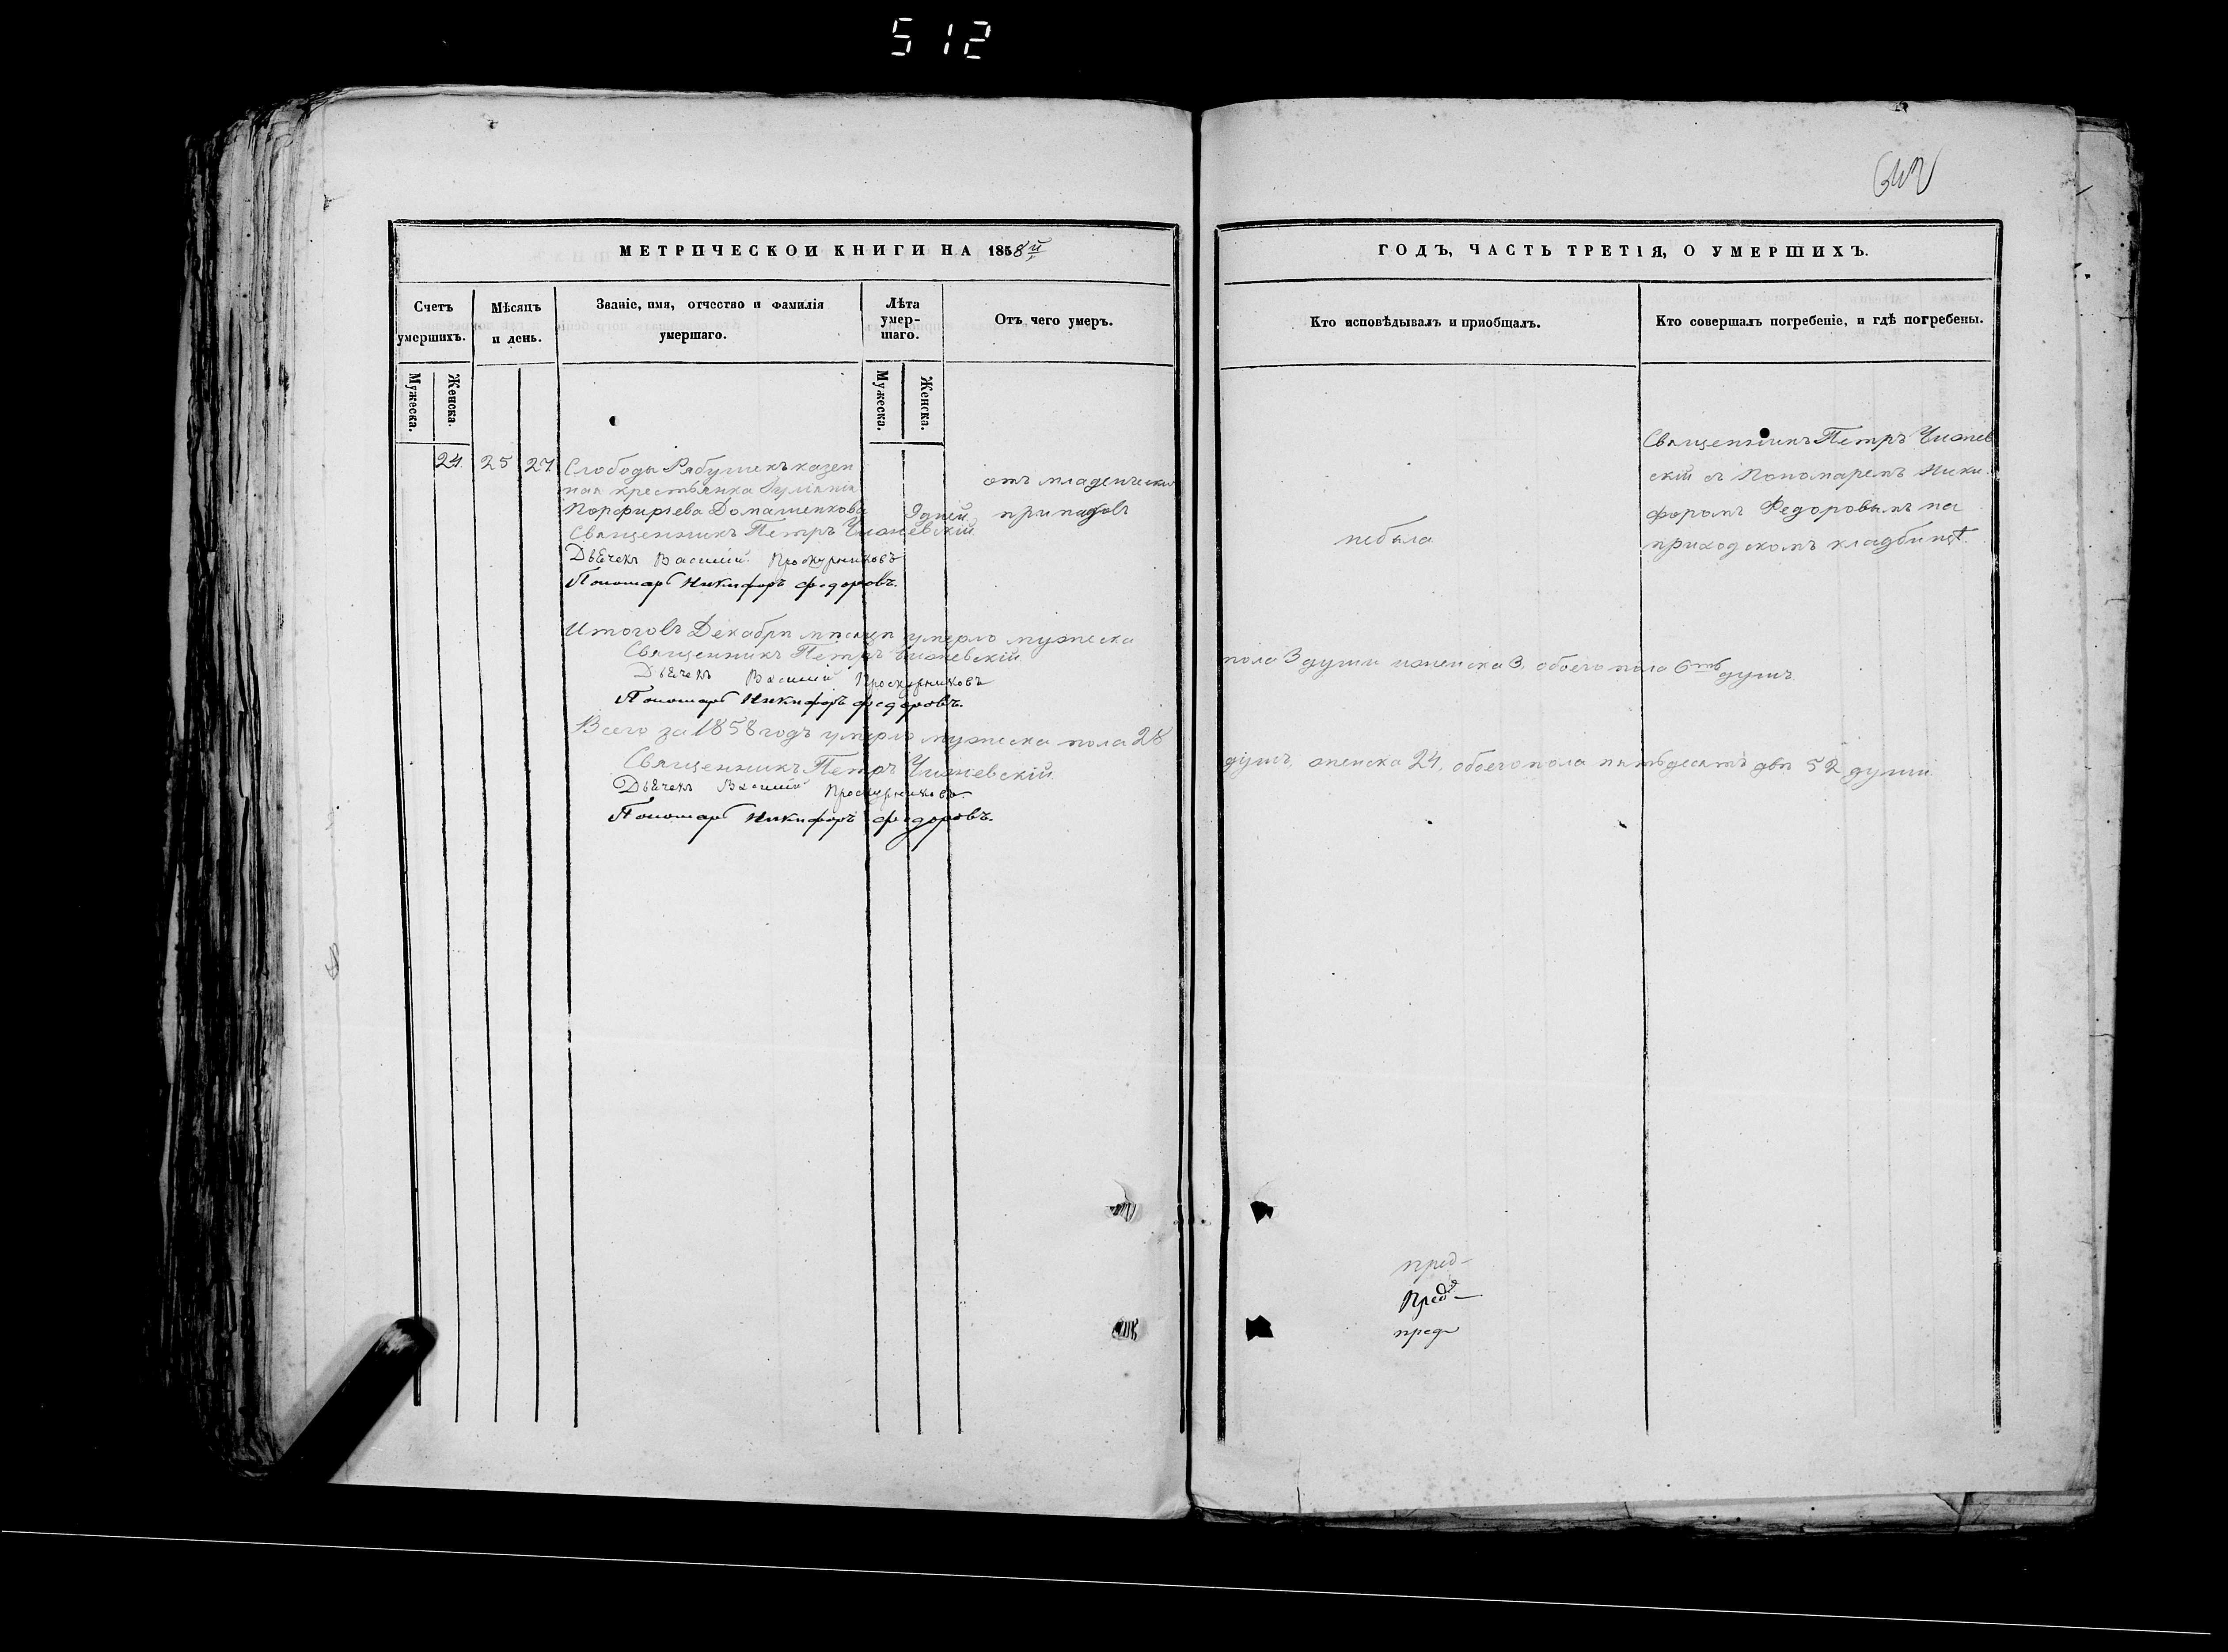 512
МЕТРИЧЕСКОЙ КНИГИ НА 1858й
ГОДЪ, ЧАСТЬ ТРЕТІЯ, О УМЕРШИХЪ.
Счетъ умершихъ.
Мѣсяцъ и день.
Званіе, имя, отчество и фамилія умершаго.
Лѣта умер-
шаго.
Отъ чего умеръ.
Кто исповѣдывалъ и пріобщалъ.
Кто совершалъ погребеніе, и гдѣ погребены.
Мужеска.
Женска.
Мужеска.
Женска.
24. 25 27
Слободы Рябушекъ казен
ная крестьянка Іуліанія
Порфиріева Домашенкова
9 дней
отъ младенческих
припадовъ
Священникъ Петръ Чижевскій
Дьячекъ Василій Проскурниковъ
Пономарь Никифоръ Федоровъ.
небыла
Священникъ Петръ Чижев
скій съ Пономаремъ Ники
форомъ Федоровымъ на
приходскомъ кладбищѣ.
Итоговъ Декабрѣ мѣсяцѣ умерло мужеска
пола 3 души иженска 3, обоего пола 6ть душъ
Священникъ Петръ Чижевскій
Дьячекъ Василій Проскурниковъ
Пономарь Никифоръ Федоровъ.
Всего за 1858 годъ умерло мужеска пола 28
душъ, женска 24, обоего пола пятьдесятъ двѣ 52 души
Священникъ Петръ Чижевскій
Дьячекъ Василій Проскурниковъ.
Пономарь Никифоръ Федоровъ.
пред
Пред
пред